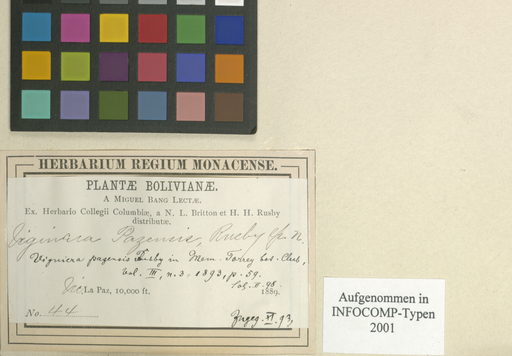 HERBARIUM REGIUM MONACENSE.
PLANTÆ BOLIVIANÆ.
A Miguel Bang Lectæ.
Ex. Herbario Collegii Columbiæ, a N. L. Britton et H. H. Rusby
distributæ.
Viguiera Pazensis, Rusby sp. n.
Viguiera pazensis Rusby in Mem. Torrey bot. Club,
vol. III, n. 3. 1893, p. 59.
Vic. La Paz, 10,000 ft.
1889.
No. 44
Zugeg. XI. 93.
Aufgenommen in
INFOCOMP-Typen
2001